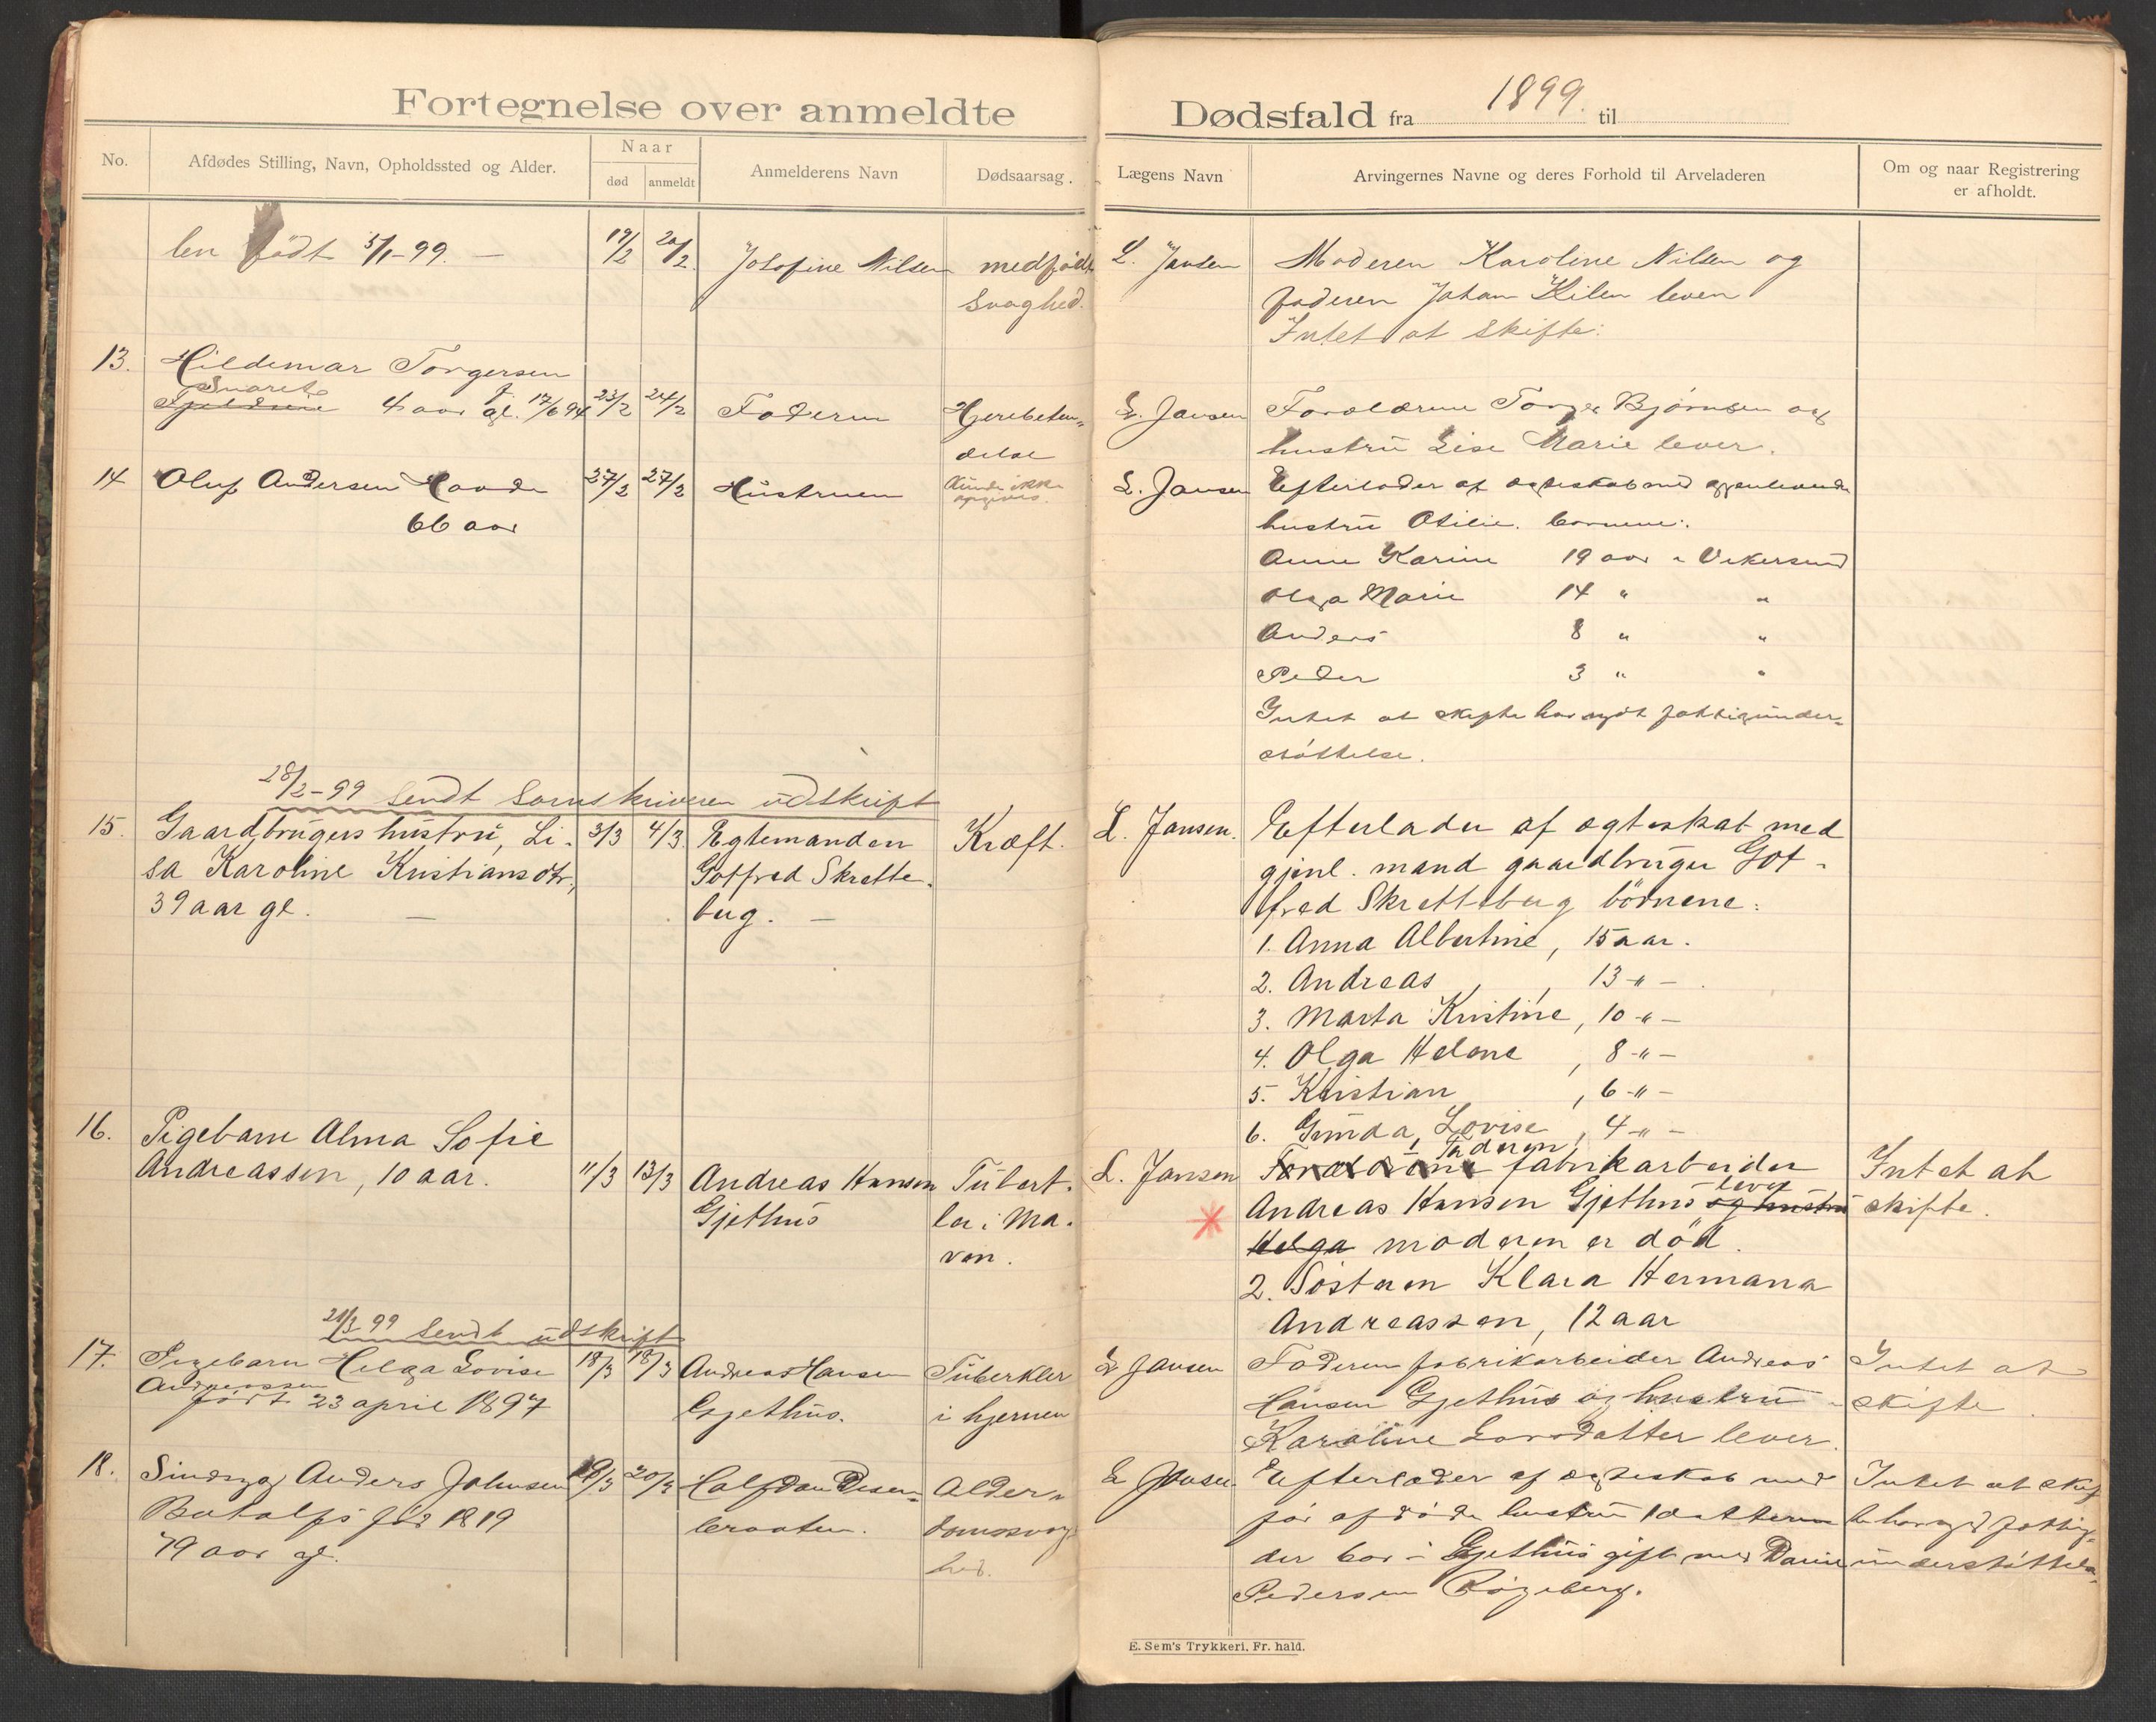 Fortegnelse over anmeldte
No.
Afdødes Stilling, Navn, Opholdssted og Alder.
Naar
død
anmeldt
Anmelderens Navn
Dødsaarsag.
len født 5/1-99. —
19/2
20/2
Josefine Nilsen
medfødt
Svaghed.
13.
Hildemar Torgersen
4 aar gl. f. 17/6 94
23/2
24/2
Faderen
Hjerebeten-
delse
14
Oluf Andersen Hovde
66 aar
27/2
27/2
Hustruen
Kunde ikke
opgives.
28/2-99 Sendt Sornskriveren udskript
15.
Gaardbrugers hustru, Li-
sa Karoline Kristiansdtr.,
39 aar gl. —
3/3
4/3
Egtemanden
Gotfred Skrette-
berg. —
Kræft.
16.
Pigebarn Alma Sofie
Andreassen, 10 aar.
11/3
13/3
Andreas Hansen
Gjethus
Tubert.
ler i Ma-
ven.
21/3 99 Sendt udskript
17.
Pigebarn Helga Lovise
Andreassen
født 23 april 1897
18/3
18/3
Andreas Hansen
Gjethus.
Tuberkler
i hjernen
18.
Anders Johnsen
født 1819
79 aar gl.
19/3
20/3
Halfdan
braaten.
Alder-
domssvag-
hed.
Dødsfald fra 1899. til
Lægens Navn
Arvingernes Navne og deres Forhold til Arveladeren
Om og naar Registrering
er afholdt.
L. Jansen
Moderen Karoline Nilsen og
faderen Johan Kilen lever
Intet at skifte.
L. Jansen
Forældrene Torger Bjørnsen og
hustru Lise Marie lever.
L. Jansen
Efterlader af ægteskab med gjenlevende
hustru Otilie. børnene:
Anne Karine 19 aar - Vikersund
Olga Marie 14 " "
Anders 8 " "
Peder 3 " "
Intet at skifte har nydt fattigunder-
støttelse.
L. Jansen.
Efterlader af ægteskab med
gjenl. mand gaardbruger Got-
fred Skretteberg børnene:
1. Anna Albertine, 15 aar.
2. Andreas, 13 -"-
3. Marta Kristine, 10 -"-
4. Olga Helene, 8 -"-
5. Kristian, 6 -"-
6. Gunda Lovise, 4 -"-
L. Jansen
1 Faderen
Forældrene fabrikarbeider
Andreas Hansen Gjethus lever og hustru
Helga moderen er død.
2. Søsteren Klara Hermana
Andreassen, 12 aar
Intet at
skifte.
L Jansen
Faderen fabrikarbeider Andreas
Hansen Gjethus og hustru
Karoline Larsdatter lever.
Intet at
skifte.
L Jansen.
Efterlader af ægteskab med
før afdøde hustru 1 datteren
der bor i Gjethus gift med
Pedersen Røgeberg.
Intet at skif
te har nyd fattig-
understøttelse
E. Sem's Trykkeri, Fr. hald.